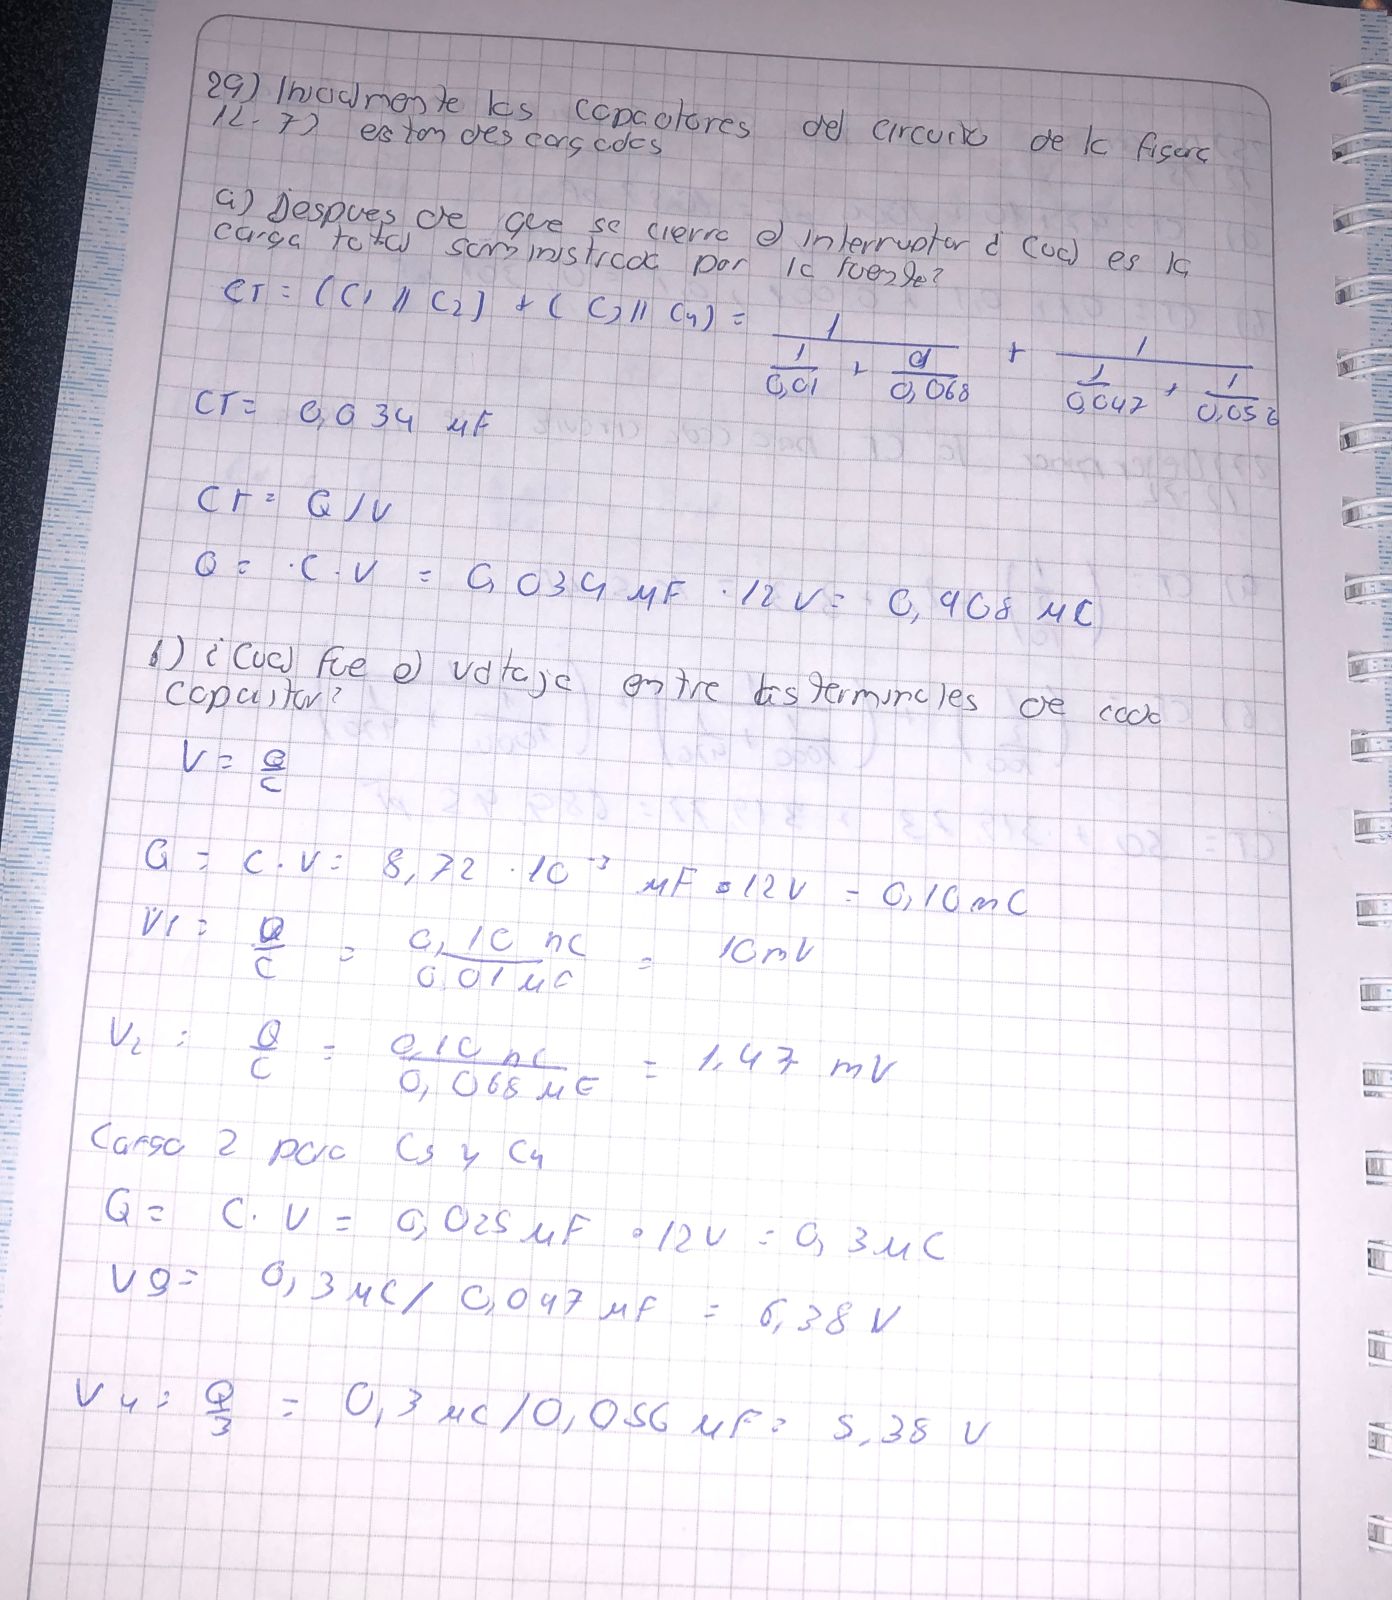 29) Inicialmente los capacitores del circuito de la figura
12-73 estan descargados
a) Despues de que se cierre el interruptor ¿Cual es la
carga total suministrada por la fuente?
CT = (C1 // C2) + ( C3 // C4) = 1 / (1/0,01 + 1/0,068) + 1 / (1/0,047 + 1/0,056)
CT = 0,034 μF
CT = Q/V
Q = ·C·V = 0,034 μF · 12 V = 0,408 μC
b) ¿Cual fue el voltaje entre las terminales de cada
capacitor?
V = Q/C
Q = C·V = 8,72 · 10⁻³ μF · 12V = 0,10 mC
V1 = Q/C = 0,10 nC / 0,01 μC = 10mV
V2 = Q/C = 0,10 nC / 0,068 μC = 1,47 mV
Carga 2 para C3 y C4
Q = C· V = 0,025 μF · 12V = 0,3 μC
V3 = 0,3 μC / 0,047 μF = 6,38 V
V4 = Q/3 = 0,3 μC / 0,056 μF = 5,35 V